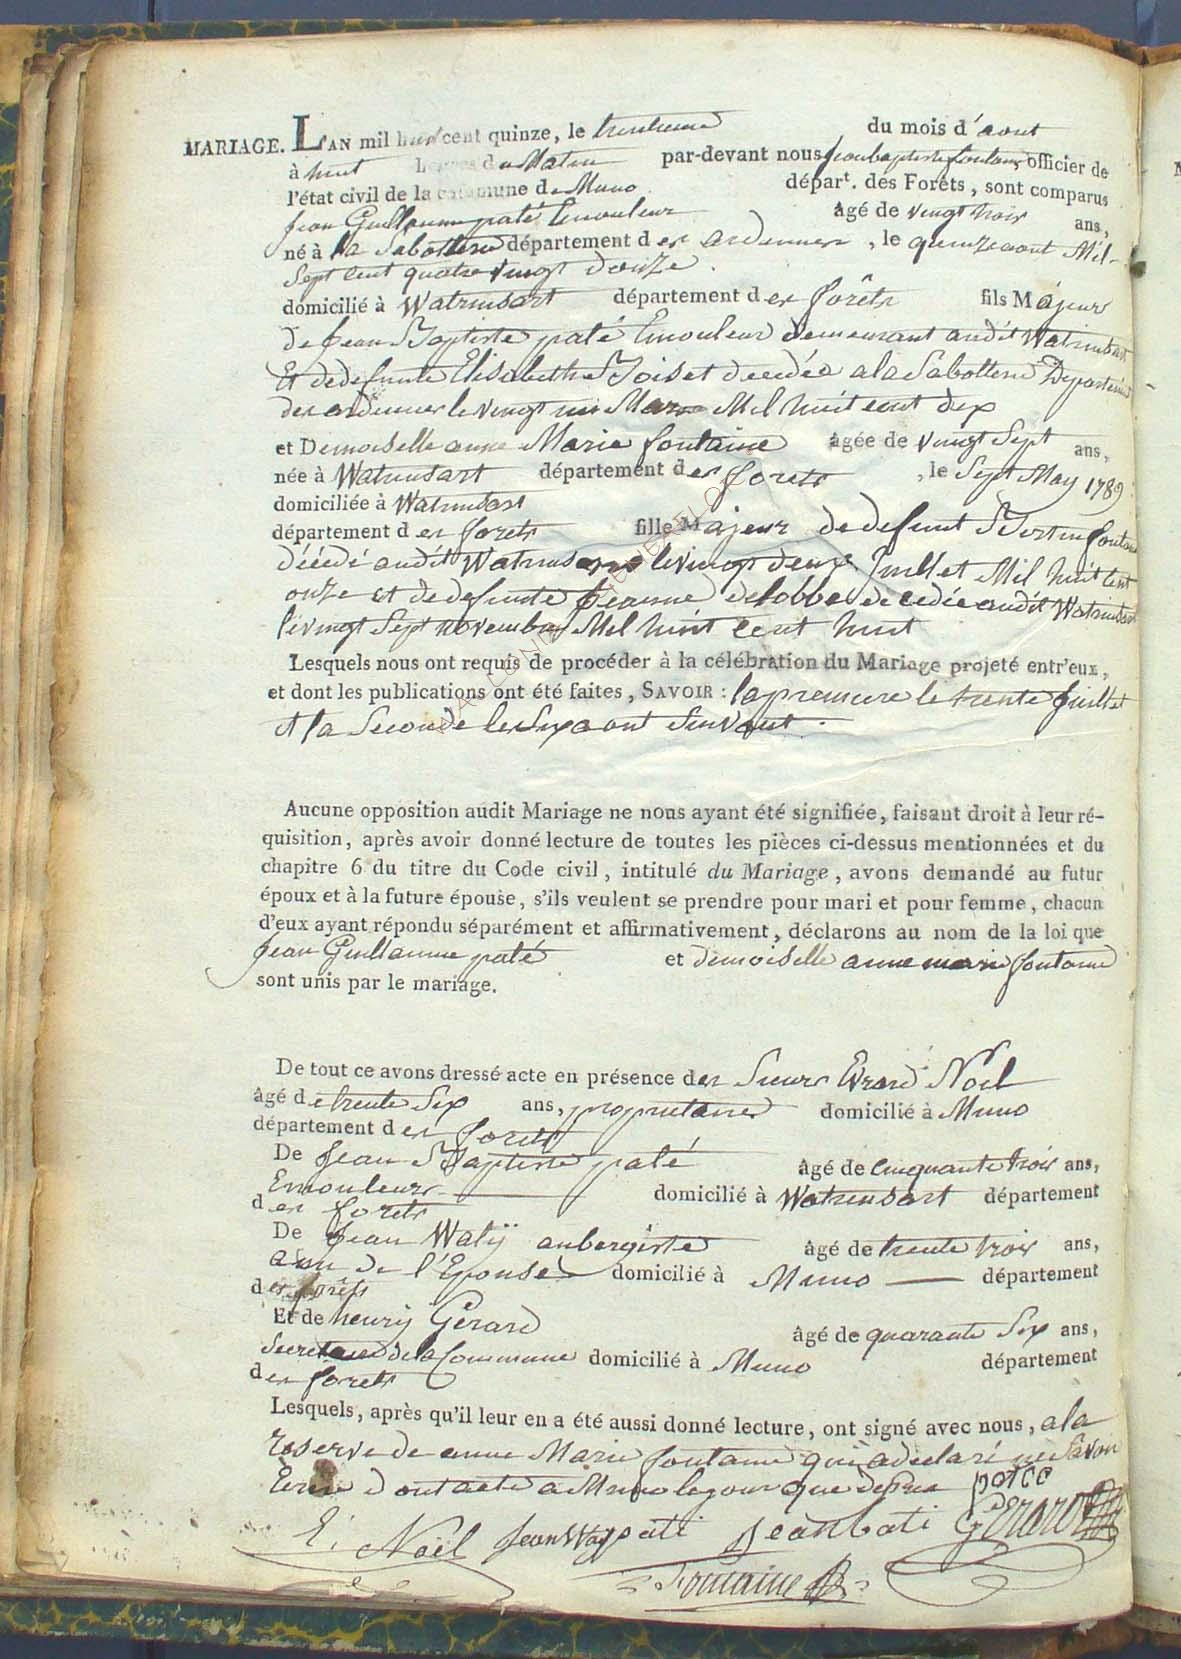 MARIAGE. L'AN mil huit cent quinze, le trentieme du mois d'aout
à huit heures du Matin par-devant nous Jean baptiste fontaine officier de
l'état civil de la commune de Muno départ. des Forêts, sont comparus
Jean Guillaume paté Emouleur âgé de vingt trois ans,
né à la Sabotterie département des ardennes, le quinze aout Mil-
Sept cent quatre vingt douze.
domicilié à Watrinsart département des forêts fils Majeur
de Jean Baptiste paté Emouleur demeurant audit Watrinsart
Et de defunte Elisabeth décédée a la Sabotterie Departement
des ardennes le vingt un Mars Mil huit cent dix
et Demoiselle anne Marie fontaine âgée de vingt Sept ans,
née à Watrinsart département des forets, le Sept May 1789
domiciliée à Watrinsart
département des forets fille Majeur de defunt Bertin fontaine
décédé audit Watrinsart le vingt deux Juillet Mil huit cent
onze et de defunte Jeanne delobbe décédée audit Watrinsart
le vingt Sept novembre Mil huit cent huit
Lesquels nous ont requis de procéder à la célébration du Mariage projeté entr'eux,
et dont les publications ont été faites, SAVOIR : la premiere le trente Juillet
et la Seconde le Six aout Suivant.
Aucune opposition audit Mariage ne nous ayant été signifiée, faisant droit à leur ré-
quisition, après avoir donné lecture de toutes les pièces ci-dessus mentionnées et du
chapitre 6 du titre du Code civil, intitulé du Mariage, avons demandé au futur
époux et à la future épouse, s'ils veulent se prendre pour mari et pour femme, chacun
d'eux ayant répondu séparément et affirmativement, déclarons au nom de la loi que
Jean Guillaume paté et demoiselle anne marie fontaine
sont unis par le mariage.
De tout ce avons dressé acte en présence des Sieurs Evrard Noël
âgé de trente Six ans, proprietaire domicilié à Muno
département des forets
De Jean Baptiste paté âgé de cinquante trois ans,
Emouleur domicilié à Watrinsart département
des forets
De Jean Watÿ aubergiste âgé de trente trois ans,
ami de l'Epouse domicilié à Muno département
des forêts
Et de henry Gérard âgé de quarante Six ans,
Secretaire de la Commune domicilié à Muno département
des forets
Lesquels, après qu'il leur en a été aussi donné lecture, ont signé avec nous, a la
reserve de anne Marie fontaine qui a declaré ne Savoir
Ecrire dont acte a Muno le jour que dessus
E. Noël Jean Waty pati Jean bati GERARD
Fontaine